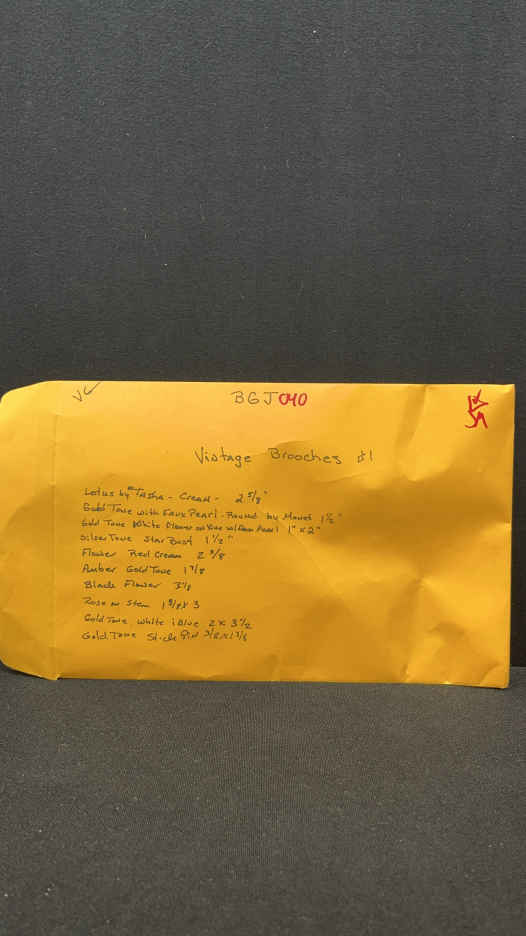 VC
BGJ040
Vintage Brooches #1
Lotus by Tasha - Cream - 2 5/8"
Gold Tone with Faux Pearl - Round by Monet 1 1/2"
Gold Tone White Flower on Vine w/ Faux Pearl 1" x 2"
Silver Tone Star Burst 1 1/2"
Flower Red Cream 2 3/8
Amber Gold Tone 1 7/8
Black Flower 3 1/8
Rose on Stem 1 5/8 x 3
Gold Tone, White & Blue 2 x 3 1/2
Gold Tone Stick Pin